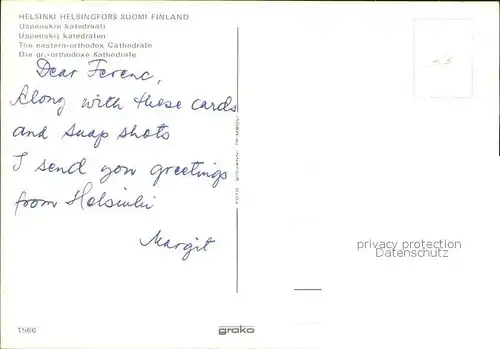 HELSINKI HELSINGFORS SUOMI FINLAND
Uspenskin katedraali
Uspenskij katedralen
The eastern-orthodox Cathedrale
Die gr.-orthodoxe Kathedrale
Dear Ferenc,
Along with these cards
and snap shots
I send you greetings
from Helsinki
Margit
FOTO GIOVANNI TRIMBOLI
privacy protection
Datenschutz
1566
grako